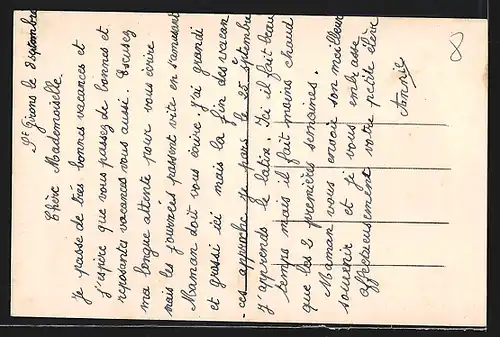 St Girons le 8 septembre
Chère Mademoiselle
Je passe de très bonnes vacances et
j'espère que vous passez de bonnes et
reposantes vacances vous aussi. Escusez
ma longue attente pour vous écrire
mais les journées passent vite en s'amusant
Maman doit vous écrire. J'ai grandi
et grossi ici mais la fin des vacan
-ces approche je pars le 25 septembre
J'apprends le latin. Ici il fait beau
temps mais il fait moins chaud
que les 2 premières semaines.
Maman vous envoie son meilleur
souvenir et je vous embrasse
affectueusement votre petite élève